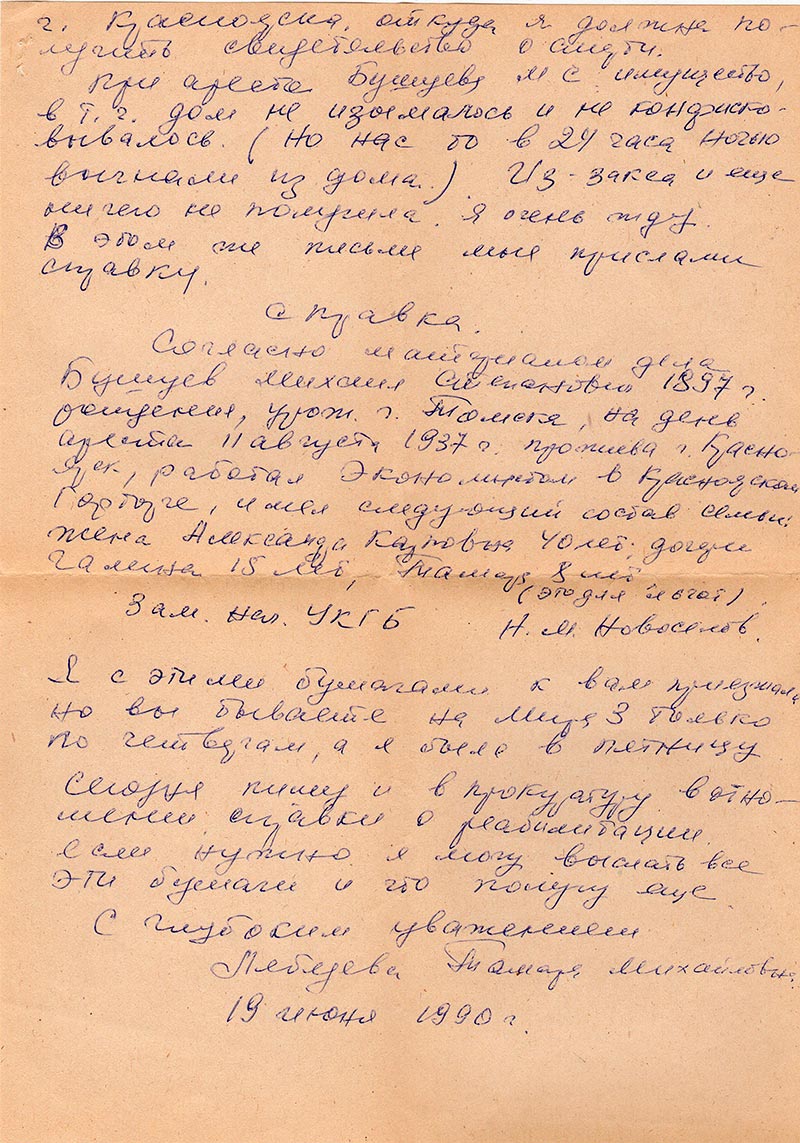 г. Красноярска, откуда я должна по-
лучить свидетельство о смерти.
При аресте Бушуева М С имущество,
в т. ч. дом не изымалось и не конфиско-
вывалось. (Но нас то в 24 часа ночью
выгнали из дома.) Из-загса и еще
ничего не получила. я очень жду.
В этом же письме мне прислали
справку.
Справка.
Согласно материалом дела
Бушуев Михаил Степанович 1897 г.
рождения, урож. г. Томска, на день
ареста 11 августа 1937 г. прожива г. Красно-
ярск, работал Экономистом в Красноярском
Горторге, имел следующий состав семьи:
жена Александра Карповна 40 лет; дочери
Галина 15 лет, Тамара 8 лет
(это для льгот).
Зам. нач. УКГБ Н. М. Новоселов.
Я с этими бумагами к вам приезжала
но вы бываете на Мира 3 только
по четвергам, а я была в пятницу
Сегодня пишу и в прокуратуру в отно-
шении справки о реабилитации.
если нужно я могу выслать все
эти бумаги и что получу еще
С глубоким уважением
Лебедева Тамара Михайловна.
19 июня 1990 г.